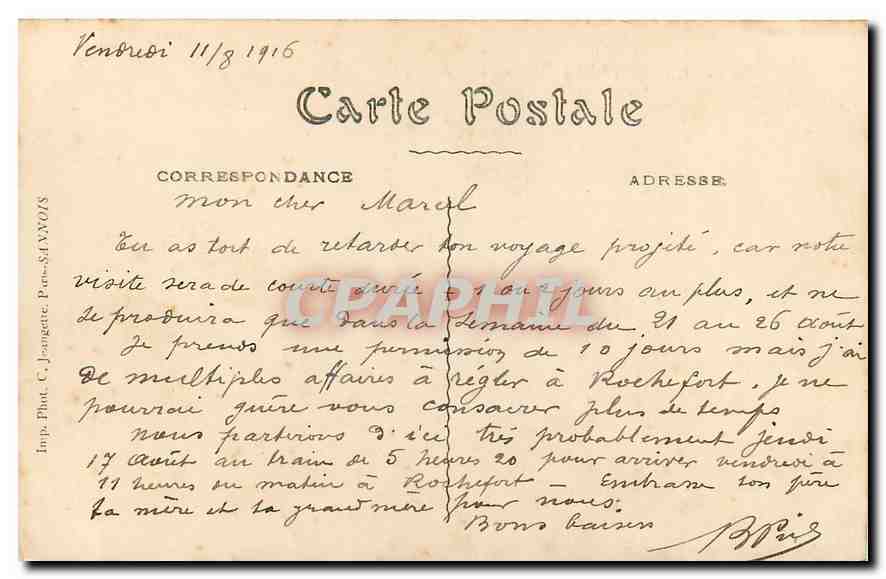 Vendredi 11/8 1916
Carte Postale
CORRESPONDANCE
ADRESSE
Mon cher Marcel
Tu as tort de retarder ton voyage projité, car notre
visite sera de courte durée - 1 ou 2 jours au plus, et ne
se produira que dans la semaine du 21 au 26 août
Je prends une permission de 10 jours mais j'ai
de multiples affaires à régler à Rochefort. Je ne
pourrai guère vous consacrer plus de temps
Nous partirons d'ici très probablement jeudi
17 août au train de 5 heures 20 pour arriver vendredi à
11 heures du matin à Rochefort - Embrasse ton père
ta mère et ta grand mère pour nous.
Bons baisers
Imp. Phot. C. Jeangette, SANNOIS
CPAPHIL